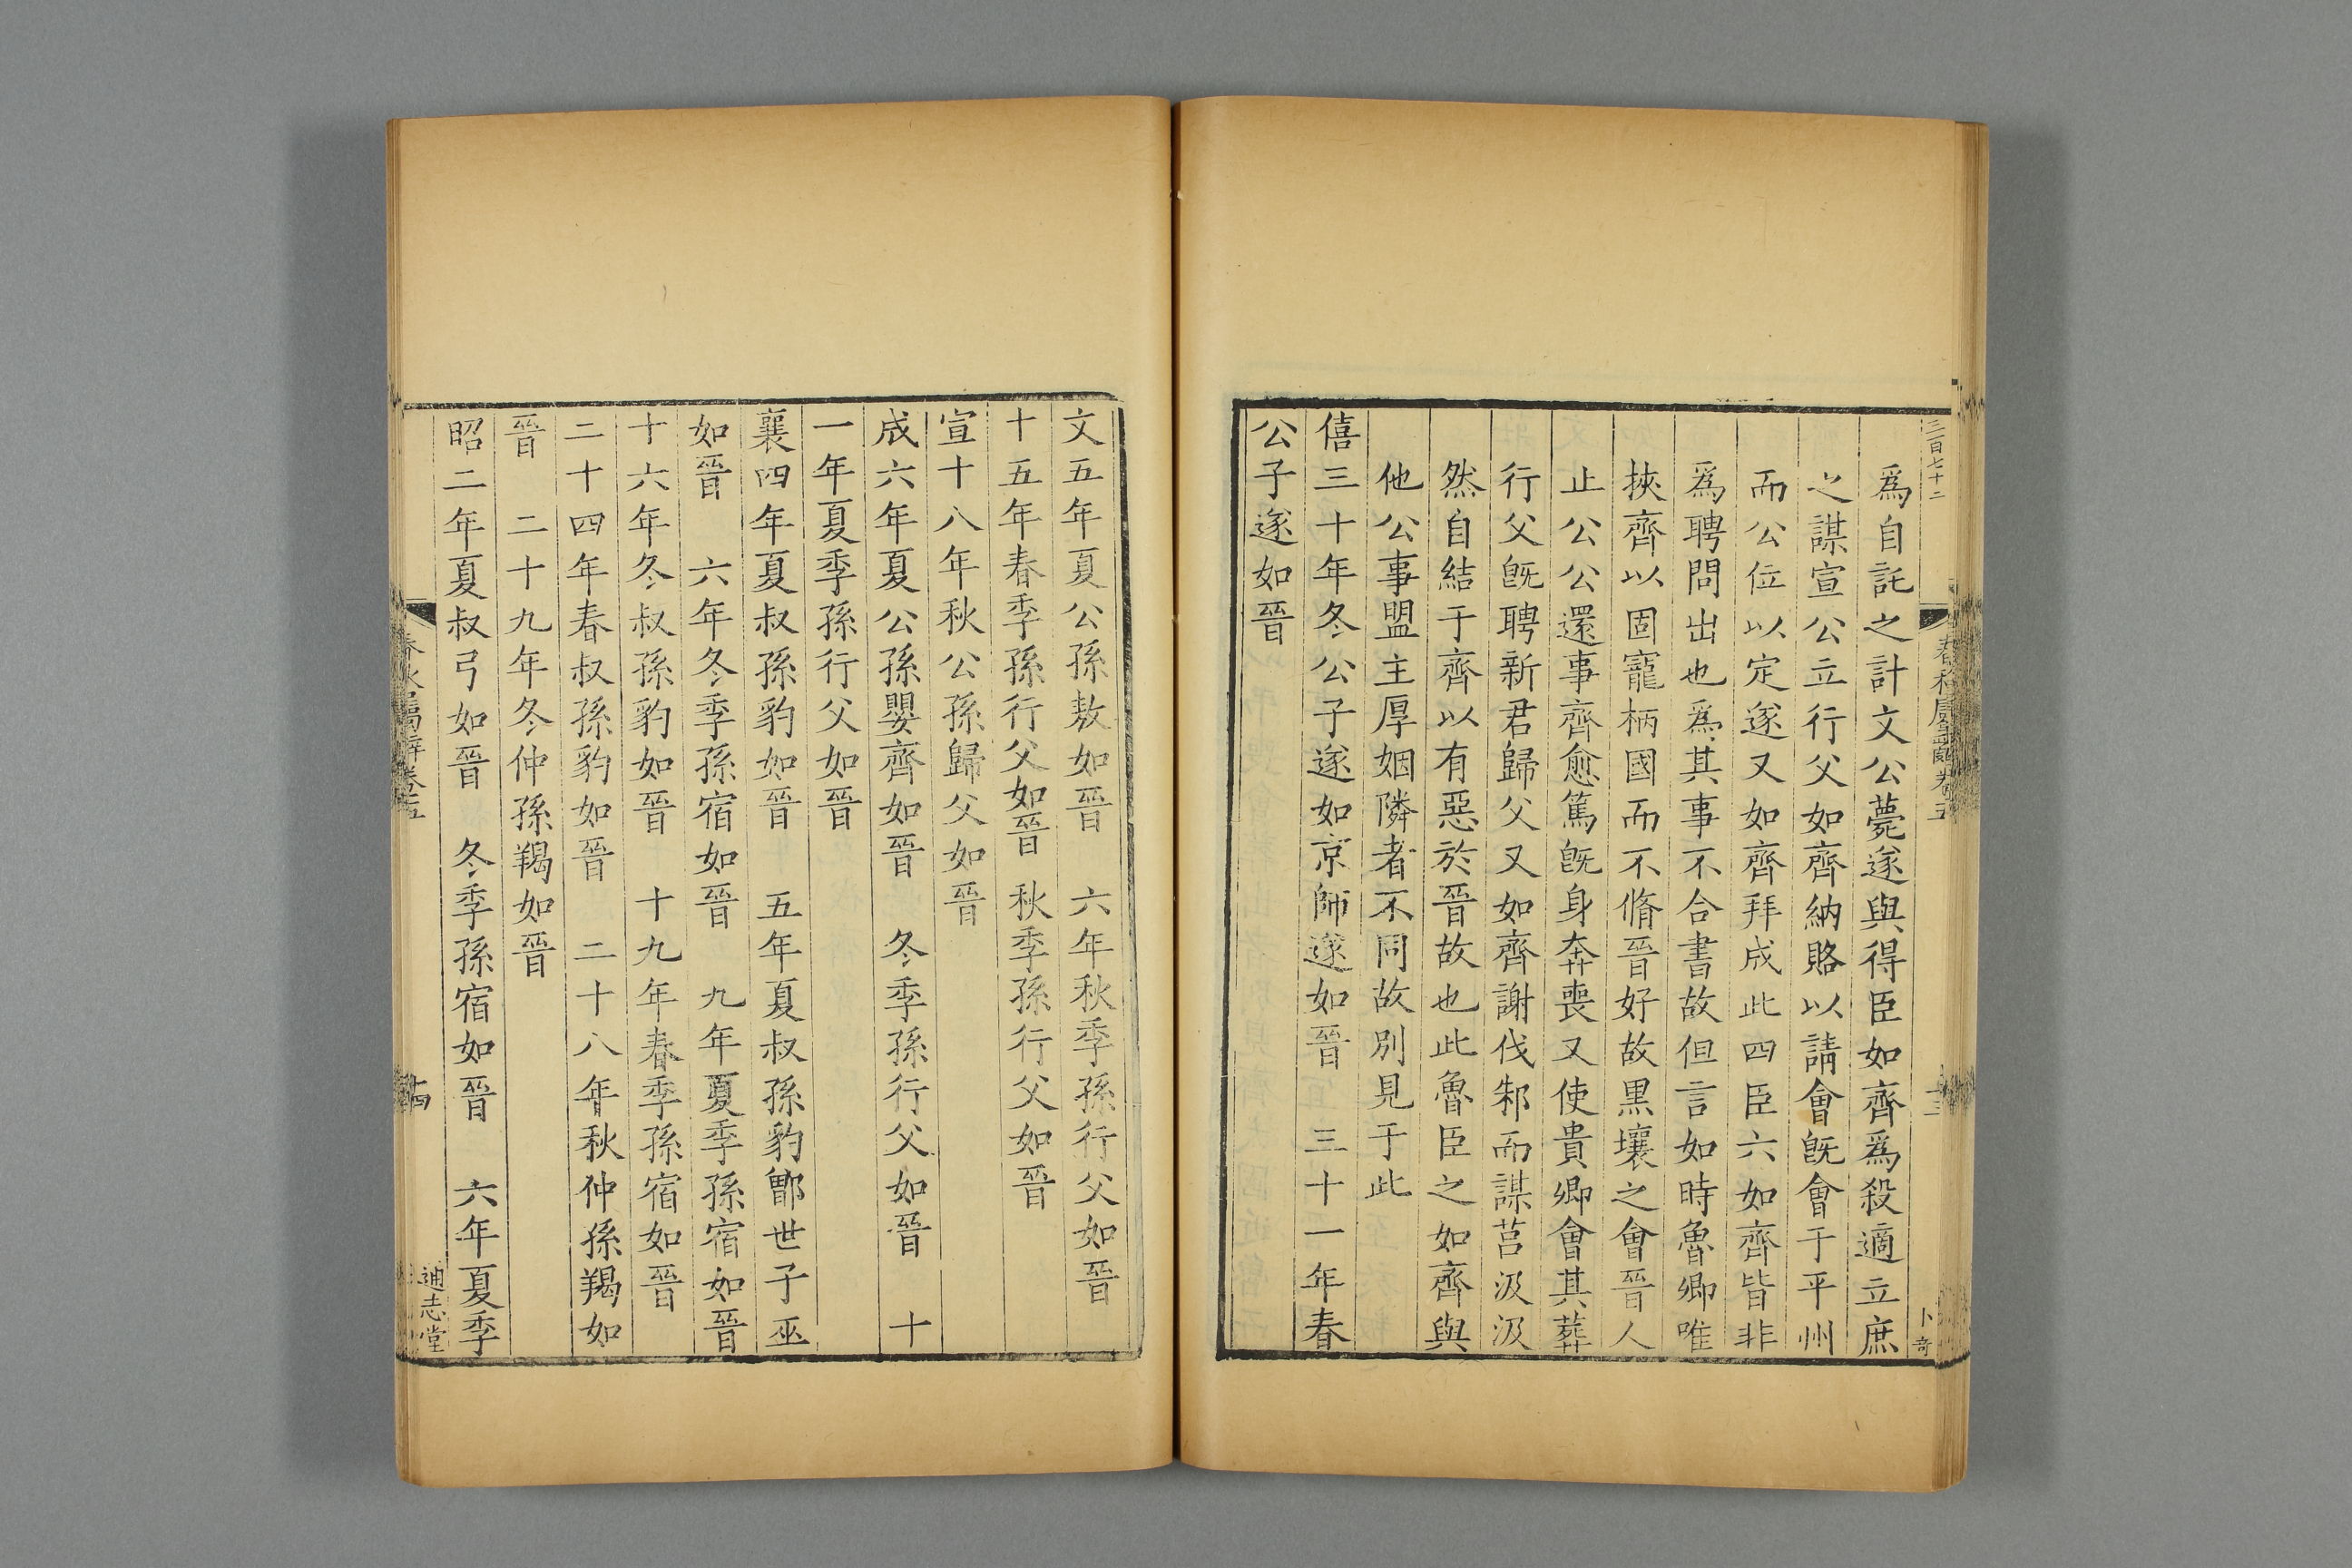 三百七十二
春秋屬辭卷五
卜奇
爲自託之計文公薨遂與得臣如齊爲殺適立庶
之謀宣公立行父如齊納賂以請會旣會于平州
而公位以定遂又如齊拜成此四臣六如齊皆非
爲聘問出也爲其事不合書故但言如時魯卿唯
挾齊以固寵柄國而不脩晉好故黒壤之會晉人
止公公還事齊愈篤旣身奔喪又使貴卿會其葬
行父旣聘新君歸父又如齊謝伐邾而謀莒汲汲
然自結于齊以有惡於晉故也此魯臣之如齊與
他公事盟主厚姻隣者不同故別見于此
僖三十年冬公子遂如京師遂如晉　三十一年春
公子遂如晉
文五年夏公孫敖如晉　六年秋季孫行父如晉
十五年春季孫行父如晉　秋季孫行父如晉
宣十八年秋公孫歸父如晉
成六年夏公孫嬰齊如晉　冬季孫行父如晉　十
一年夏季孫行父如晉
襄四年夏叔孫豹如晉　五年夏叔孫豹鄫世子巫
如晉　六年冬季孫宿如晉　九年夏季孫宿如晉
十六年冬叔孫豹如晉　十九年春季孫宿如晉
二十四年春叔孫豹如晉　二十八年秋仲孫羯如
晉　二十九年冬仲孫羯如晉
昭二年夏叔弓如晉　冬季孫宿如晉　六年夏季
春秋屬辭卷五
十四
通志堂